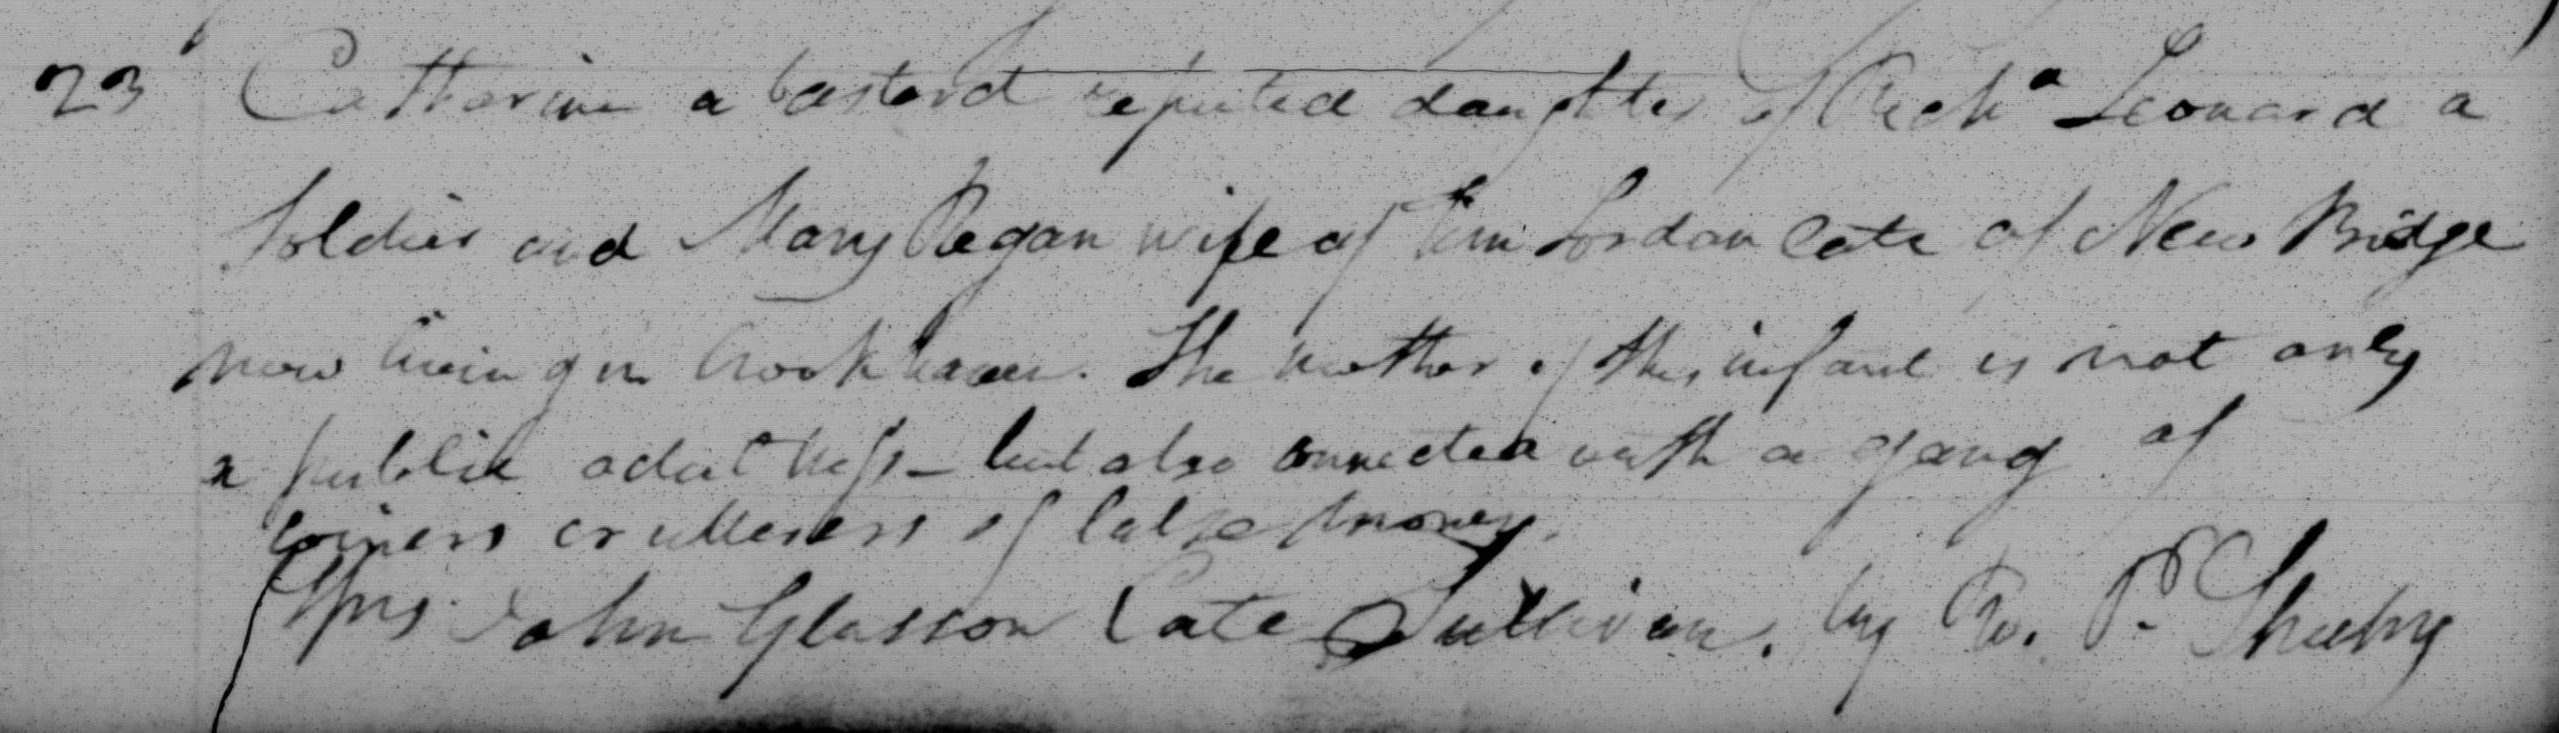 23 Catharine a bastard reputed daughter of Richd Leonard a
Soldier and Mary Regan wife of Tim Jordan late of New Bridge
now living in Crookhaven. The mother of this infant is not only
a public adultress – but also connected with a gang of
coiners or utterers of false money.
Sprs. John Glasson Cate Sullivan. by R. P. Sheehy